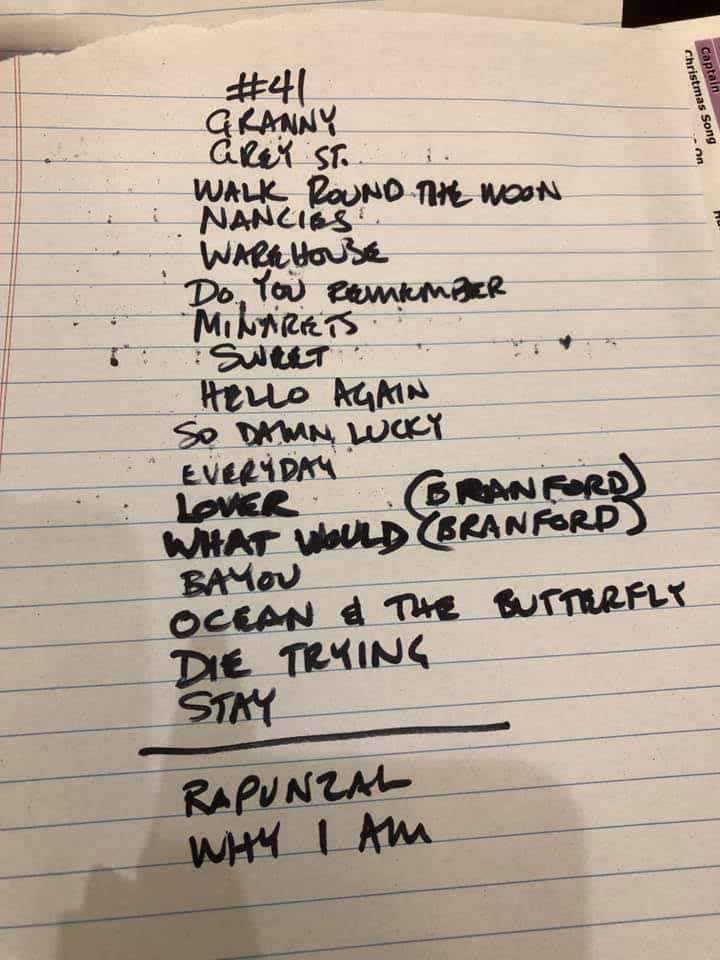 #41
GRANNY
GREY ST.
WALK ROUND THE MOON
NANCIES
WAREHOUSE
DO YOU REMEMBER
MINARETS
SWEET
HELLO AGAIN
SO DAMN LUCKY
EVERYDAY
LOVER (BRANFORD)
WHAT WOULD (BRANFORD)
BAYOU
OCEAN & THE BUTTERFLY
DIE TRYING
STAY
RAPUNZAL
WHY I AM
Captain
Christmas Song
On